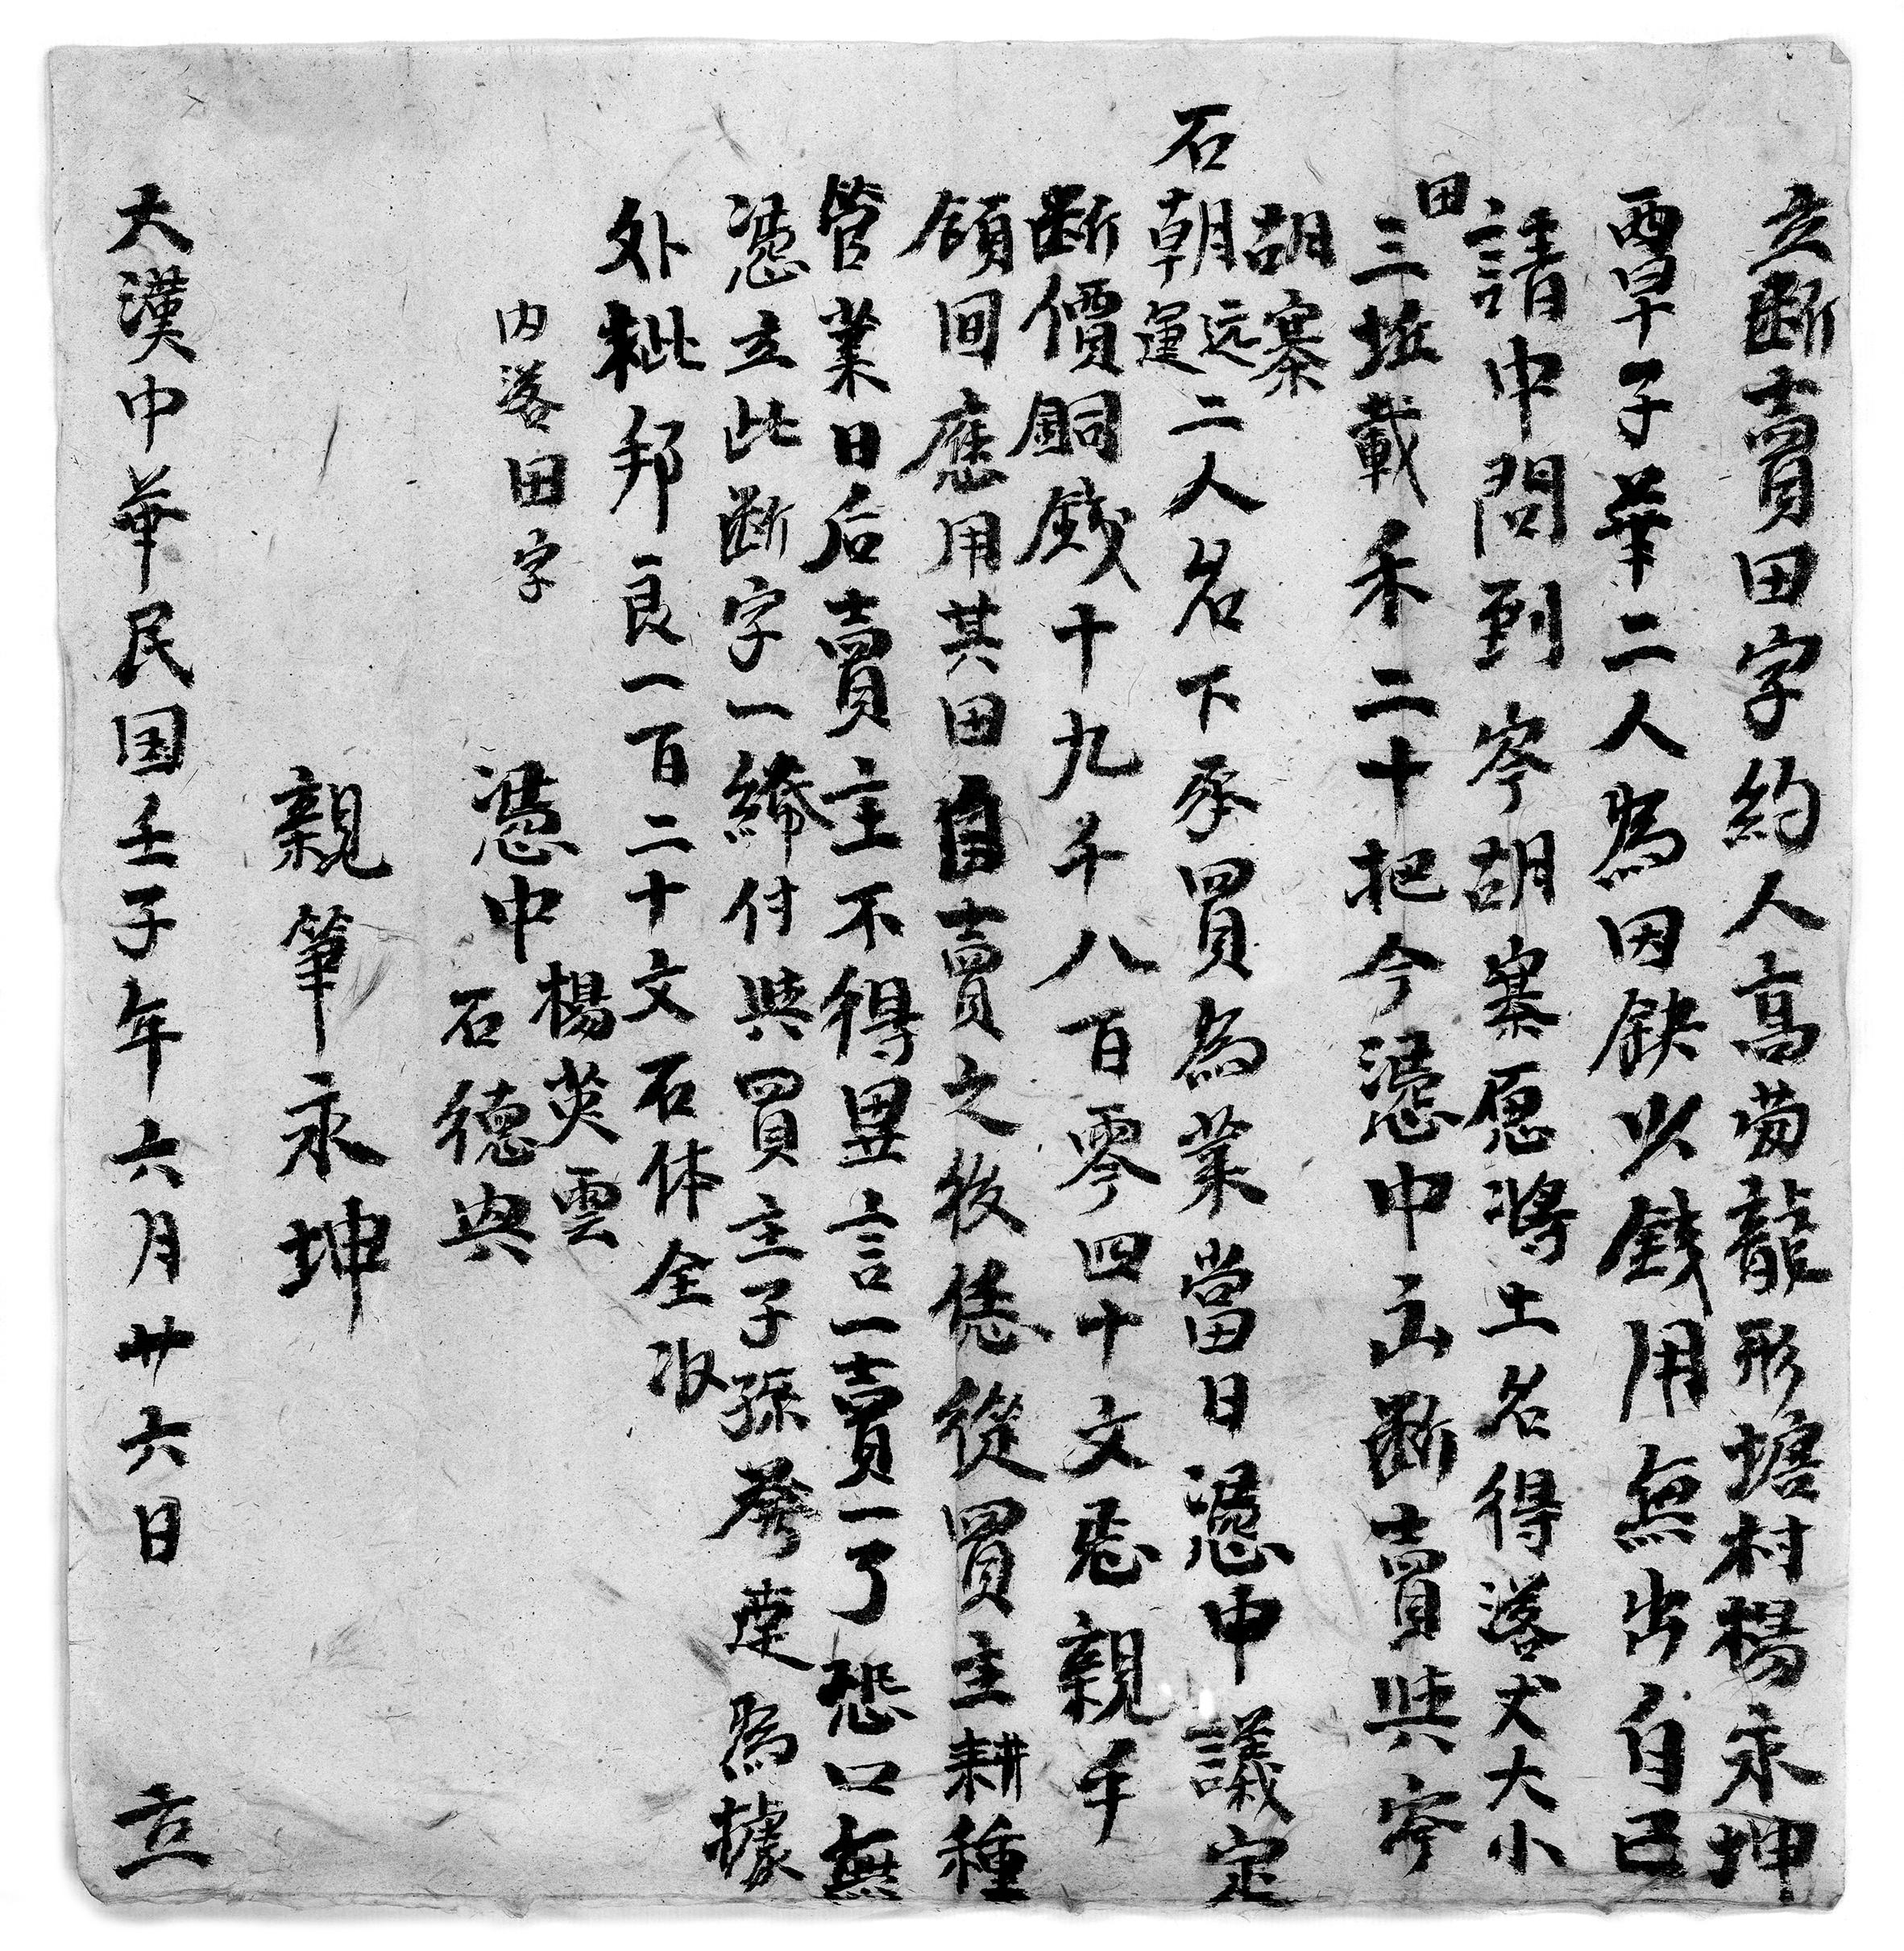 立斷賣田字約人高蒭龍形塘村楊永坤
覃子華二人為因缺少錢用無出自己
請中問到岑胡寨愿將土名得落犬大小
田三坵載禾二十把今憑中立斷賣與岑
胡寨
石朝远運二人名下承買為業當日憑中議定
斷價銅錢十九千八百零四十文悉親手
領回應用其田自賣之後恁從買主耕種
管業日后賣主不得異言一賣一了恐口無
憑立此斷字一紙付與買主子孫發達為據
外粃邦良一百二十文石体全収
内落田字
憑中 楊英雲
石德典
親筆永坤
大漢中華民国壬子年六月廿六日 立